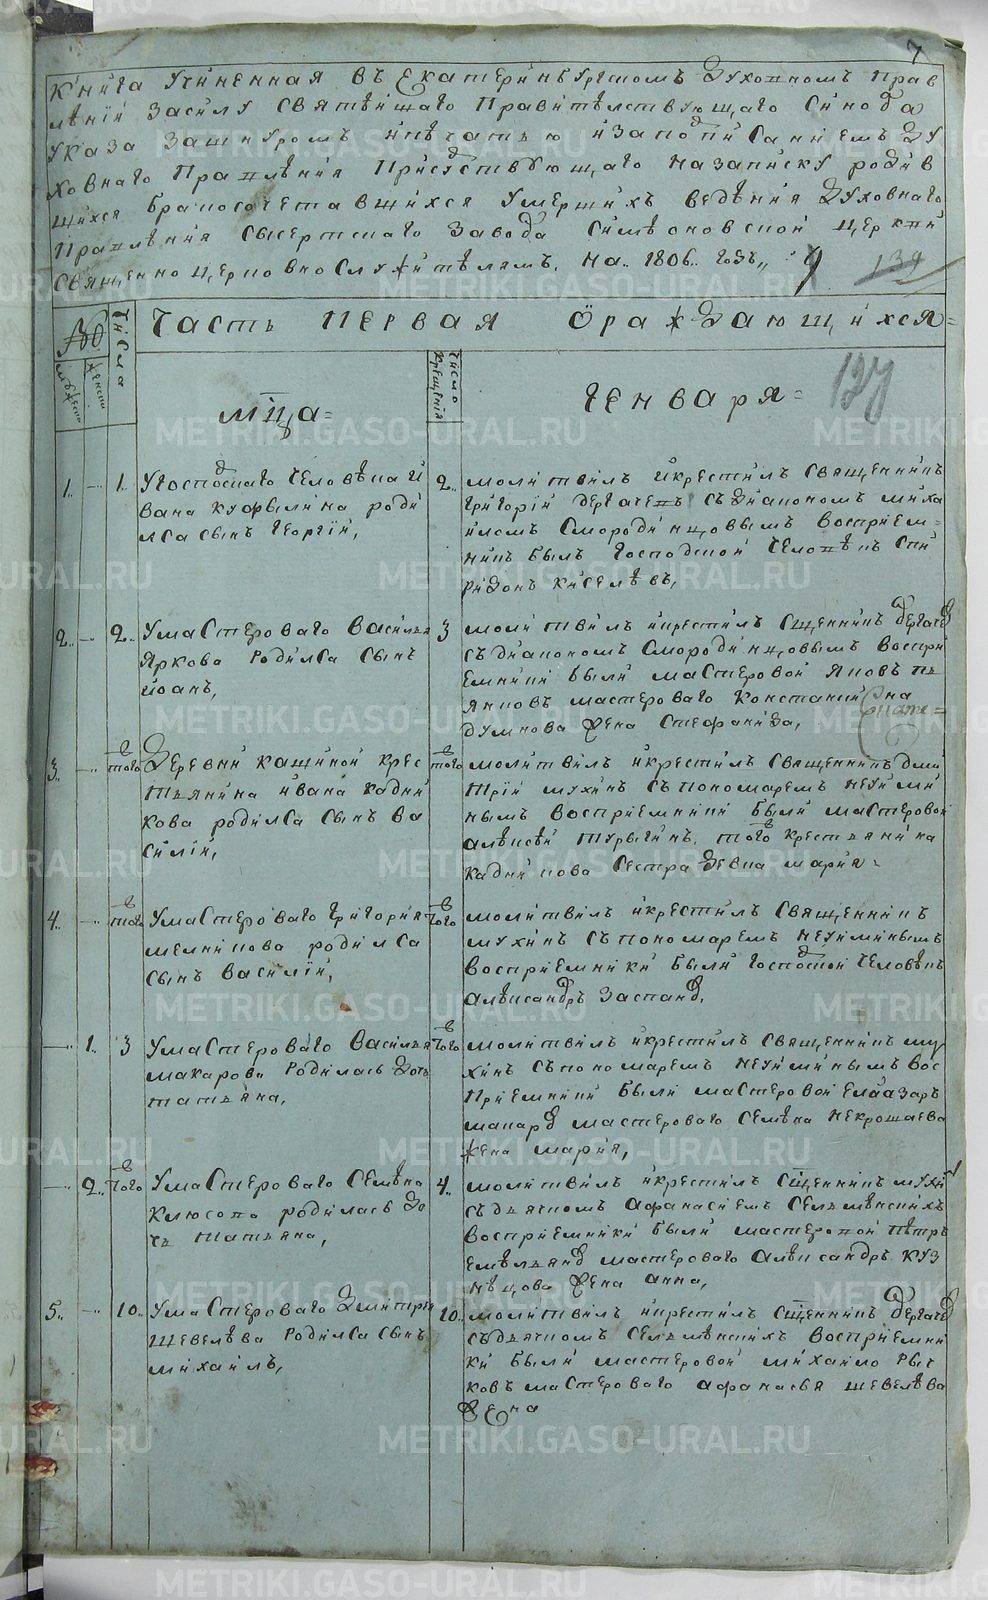 7
Книга Учиненная въ Екатеринбургскомъ Духовномъ Прав
лѣнiи Засилу Святѣйшаго Правителствующаго Синода
Указа Зашнуромъ ипечатью изаподписанiемъ Ду
ховнаго Правленiя Присудствующаго Назаписку родив
шихся Бракосочетавшихся Умершихъ ведѣнiя Духовнаго
Правленiя Сысертскаго Завода Симеоновской Церкви
Священноцерковнослужителямъ. На 1806. годъ,,
139
Числа Часть Первая Ораждающихся
Число Крещенiя
мца Генваря 137
1. — 1. Угосподскаго Человѣка И
вана Куфылкина роди
лса сынъ Георгiй,
2. молитвилъ икрестилъ Священникъ
Григорiй Дергачевъ Съдiакономъ миха
иломъ Смородинцовымъ Восприем
никъ былъ Господской Человѣкъ Спи
ридонъ Киселевъ,
2. — 2. Умастероваго Василья
Яркова Родился Сынъ
Iоанъ,
3 молитвилъ икрестилъ Сщенникъ Дергачев
Съдiакономъ Смородинцовымъ Воспри
емники были мастеровой Яковъ
мастероваго на
Думнова Жена Стефанида,
3. — того Деревни Кашиной Крес
тьянина Ивана Кадни
кова родилса Сынъ Ва
силiй,
того молитвилъ икрестилъ Священникъ Дми
трiй мухинъ Съпономаремъ Неуими
нымъ Восприемники были мастеровой
Алѣксѣй Турыгинъ, того крестьянина
Кадникова Сестра Девка марiя
4. — того Умастероваго Григорiя
мелникова родилса
Сынъ Василiй,
того молитвилъ икрестилъ Священникъ
мухинъ Съпономаремъ Неуиминымъ
Восприемники были Господской Человѣкъ
Алѣксандръ
— 1. 3 Умастероваго Василья
макарова Родилась Дочь
татьяна,
того молитвилъ икрестилъ Священникъ му
хинъ Съпономаремъ Неуиминымъ Вос
прiемники были мастеровой Елаазаръ
макаров мастероваго Семѣна Некрошаева
Жена марiя,
— 2. того Умастероваго Семѣна
Клюсова родилась До
чь Татьяна,
4. молитвилъ икрестилъ Сщенникъ мухи
Съдьячкомъ Афанасiемъ Селменскихъ
Восприемники были мастеровой Пѣтръ
Емѣльянов мастероваго Алѣксандръ Куз
нѣцова Жена Анна,
5. — 10. Умастероваго Дмитрiя
Шевелѣва Родилса Сынъ
михаилъ,
10. молитвилъ икрестилъ Сщенникъ Дергачев
Съдьячкомъ Селменскихъ Восприемни
ки были мастеровой михайло Рыч
ковъ мастероваго Афанасья Шевелѣва
Жена
METRIKI.GASO-URAL.RU